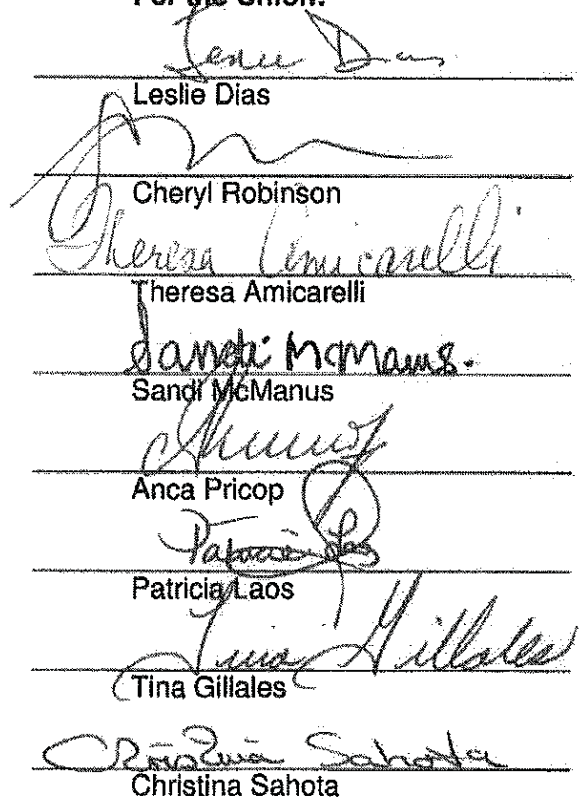 For the Union:
Leslie Dias
Leslie Dias
Cheryl Robinson
Theresa Amicarelli
Theresa Amicarelli
Sandi McManus.
Sandi McManus
Anca Pricop
Patricia Laos
Patricia Laos
Tina Gillales
Tina Gillales
Christina Sahota
Christina Sahota